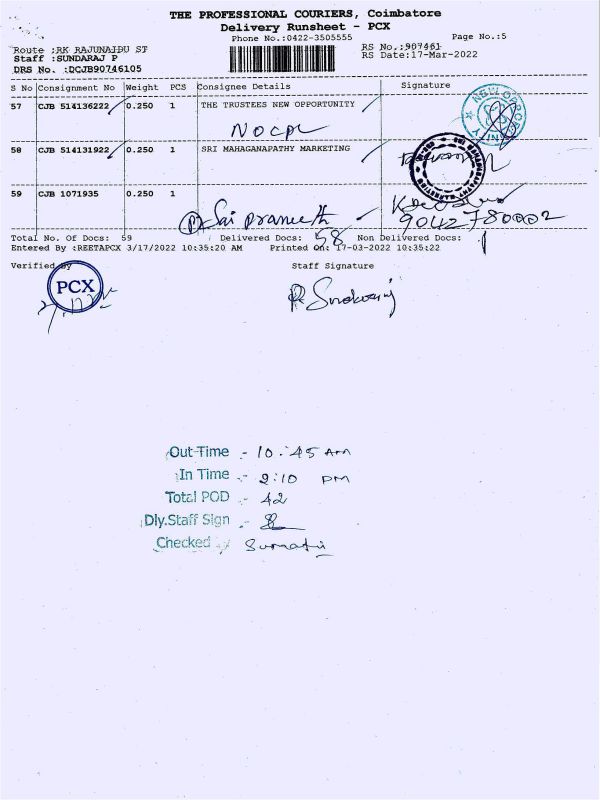 THE PROFESSIONAL COURIERS, Coimbatore
Delivery Runsheet - PCX
Phone No.:0422-3505555
Page No.:5
Route :RK RAJUNAIDU ST
RS No.:907461
Staff :SUNDARAJ P
RS Date:17-Mar-2022
DRS No. :DCJB90746105
S No Consignment No Weight PCS Consignee Details Signature
57 CJB 514136222 0.250 1 THE TRUSTEES NEW OPPORTUNITY
NOCPL
58 CJB 514131922 0.250 1 SRI MAHAGANAPATHY MARKETING
59 CJB 1071935 0.250 1
Sai Praneeth
9042780002
Total No. Of Docs: 59 Delivered Docs: 58 Non Delivered Docs: 1
Entered By :REETAPCX 3/17/2022 10:35:20 AM Printed On: 17-03-2022 10:35:22
Verified by Staff Signature
PCX
Out Time :- 10:45 AM
In Time :- 2:10 PM
Total POD :- 42
Dly.Staff Sign :-
Checked :-